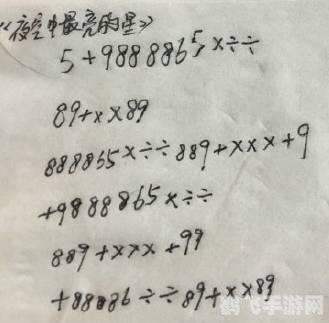 《夜空中最亮的星》
5+9888865×÷÷
89+××89
888865×÷÷889+×××+9
+9888865×÷÷
889+×××+99
+88886÷÷89+××89
鹤飞手游网